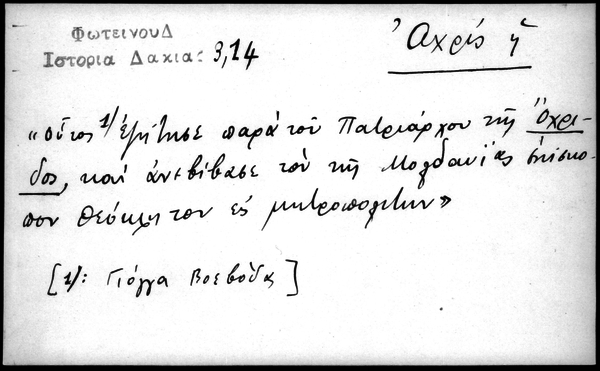 ΦωτεινουΔ
Ιστορια Δακιας 3,14
Ἀχρίς ἡ
«οὗτος 1/ ἐζήτησε παρὰ τοῦ Πατριάρχου τῆς Ὀχρι-
δος, καὶ ἀνεβίβασε τὸν τῆς Μολδανΐας ἐπίσκο-
πον Θεόκριτον εἰς μητροπολίτην»
[1/: Γιόγγα Βοεβόδας]